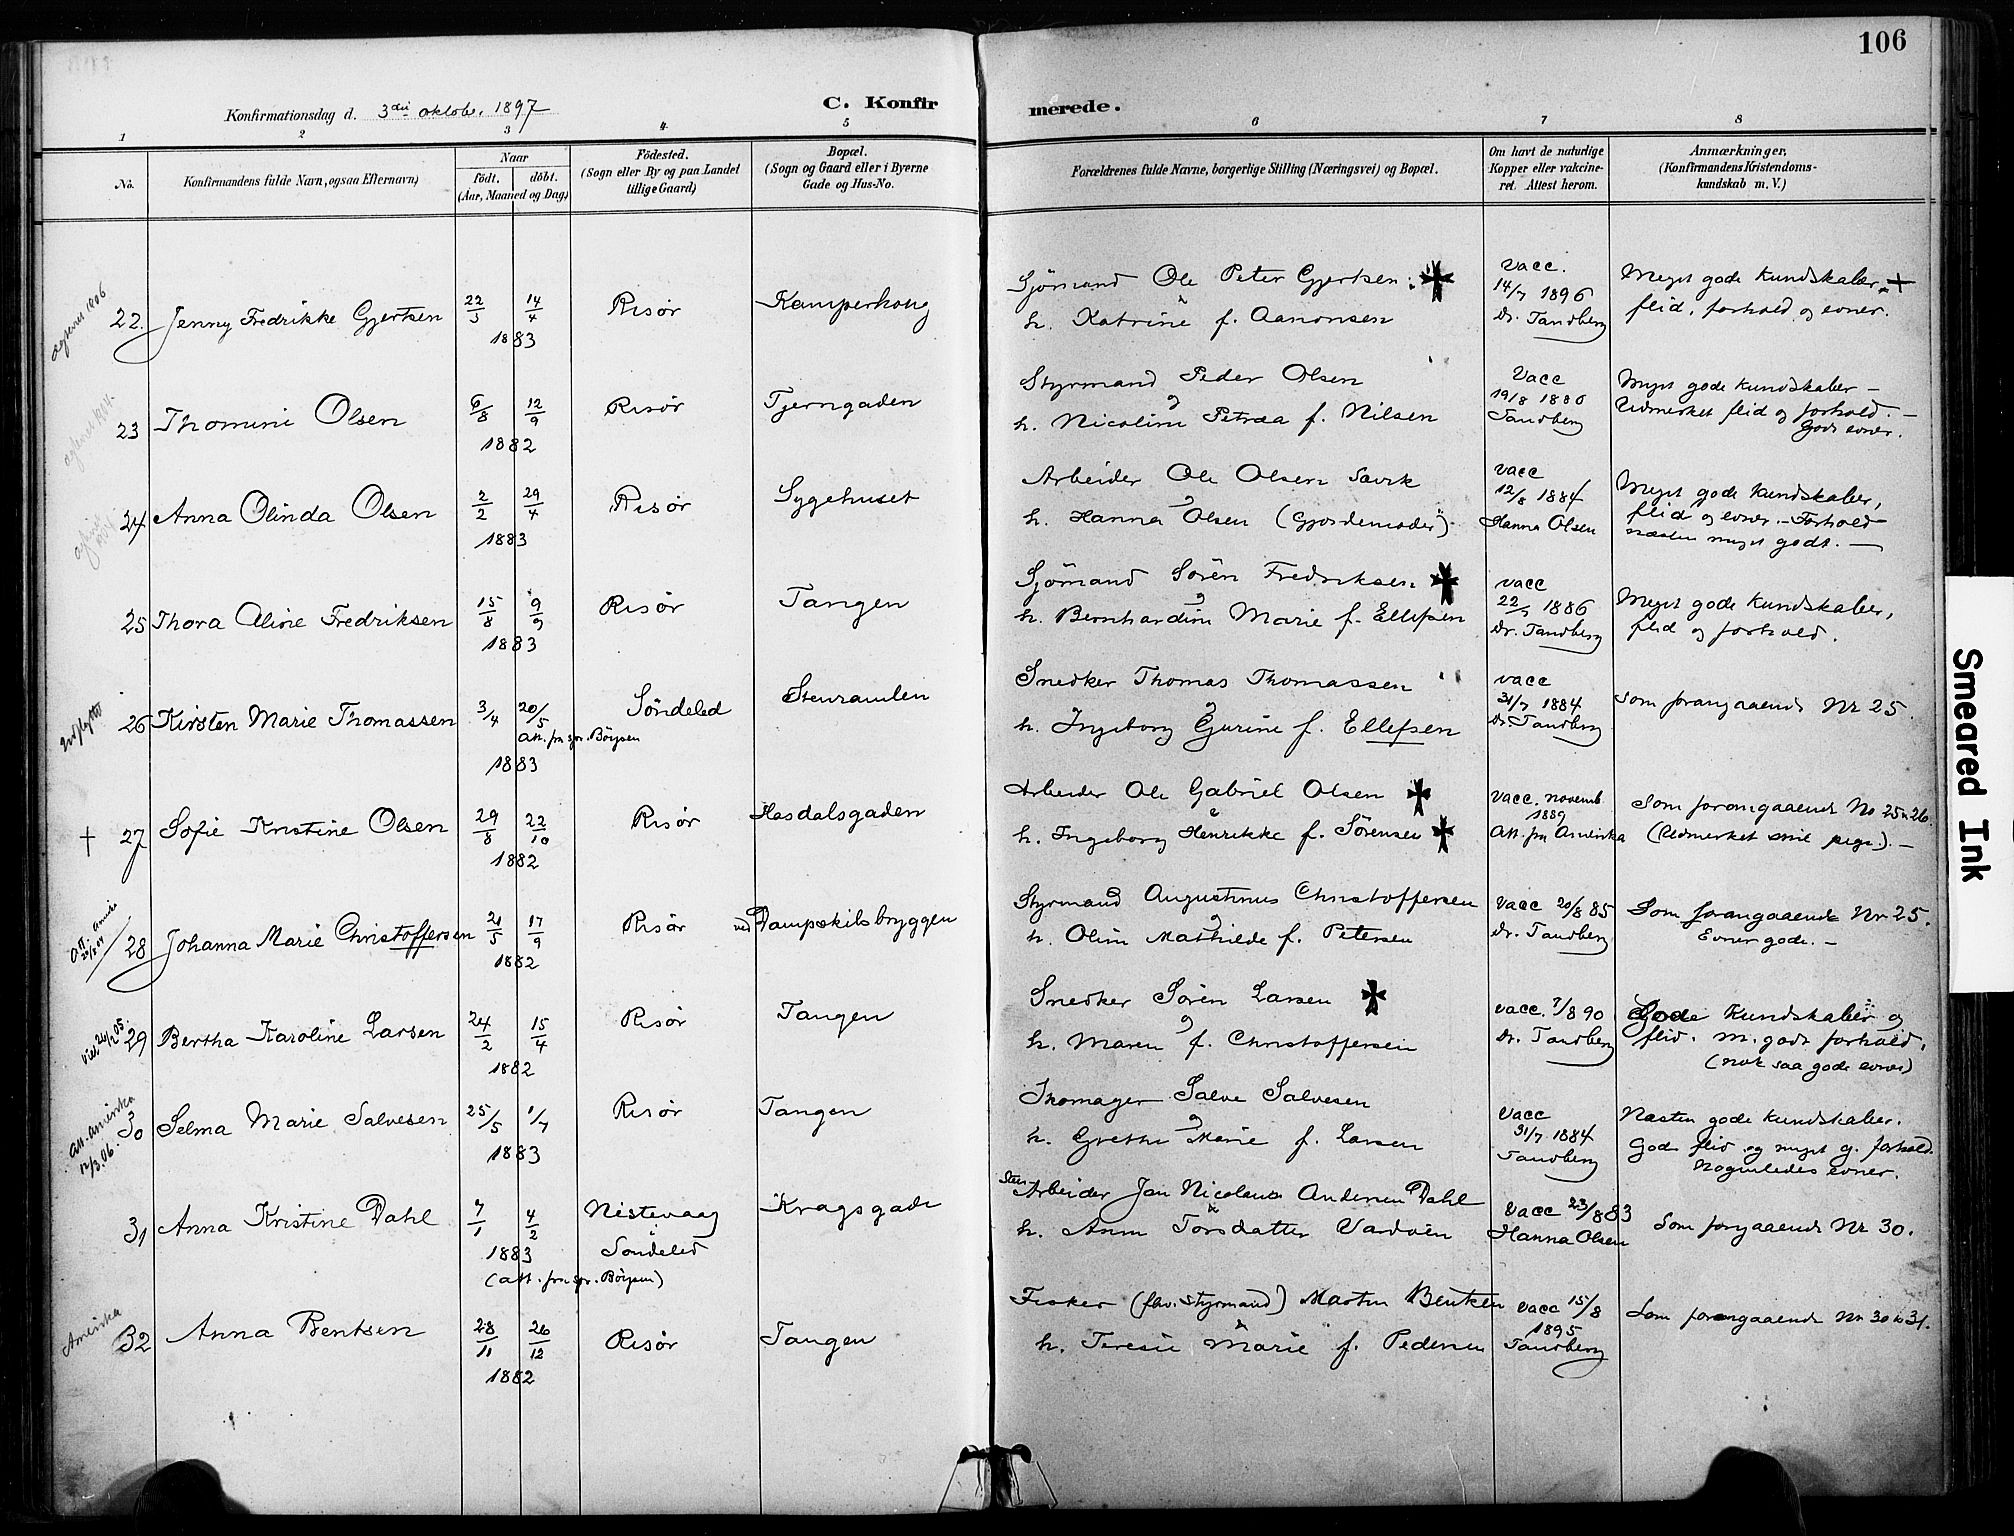 106
Konfirmationsdag d. 3die oktober 1897
C. Konfirmerede.
1 2 3 4 5 6 7 8
No.
Konfirmandens fulde Navn, ogsaa Efternavn)
Naar
födt. döbt.
(Aar, Maaned og Dag)
Födested.
(Sogn eller By og paa Landet
tillige Gaard)
Bopæl.
(Sogn og Gaard eller i Byerne
Gade og Hus-No.
Forældrenes fulde Navne, borgerlige Stilling (Næringsvei) og Bopæl.
Om havt de naturlige
Kopper eller vakcine-
ret. Attest herom.
Anmærkninger,
(Konfirmandens Kristendoms-
kundskab m. V.)
22. Jenny Fredrikke Gjertsen 22/3 14/4 1883 Risør Kamperhoug
Sjömand Ole Peter Gjertsen
h. Katrine f. Aanonsen
vacc. 14/7 1896 Dr. Tandberg
Meget gode kundskaber +
flid, forhold og evner.
23 Thomine Olsen 6/8 12/9 1882 Risør Tjerngaden
Styrmand Peder Olsen
og
h. Nicoline Petrea f. Nilsen
Vacc 19/8 1886 Tandberg
Meget gode kundskaber –
Udmerket flid og forhold. –
Gode evner.
24 Anna Olinda Olsen 2/2 29/4 1883 Risør Sygehuset
Arbeider Ole Olsen Savik
og
h. Hanna Olsen (Gjordemoder)
vacc 12/8 1884 Hanna Olsen
Meget gode kundskaber,
flid og evner. – Forhold
næsten meget godt. –
25 Thora Aline Fredriksen 15/8 9/9 1883 Risør Tangen
Sjömand Sören Fredriksen
og
h. Bernhardine Marie f. Ellefsen
vacc 1886 Dr. Tandberg
Meget gode kundskaber,
flid og forhold.
Udflyttet
26 Kirsten Marie Thomassen 3/4 20/5 1883 Söndeled Stenramlen
Att. fra spr. Börgsen
Snedker Thomas Thomassen
og
h. Ingeborg Gurine f. Ellefsen
vacc 31/7 1884 Dr. Tandberg
Som forangaaende Nr 25
† 27 Sofie Kristine Olsen 29/8 22/10 1882 Risør Hasdalsgaden
Arbeider Ole Gabriel Olsen
h. Ingeborg Henrikke f. Sörensen
Vacc. novemb. 1889 Att. fra Amerika
Som forangaaende No 25 & 26.
(Udmerket snil pige.). –
28 Johanna Marie Christoffersen 21/5 17/9 1882 Risør ved Dampskibsbryggen
Styrmand Augustinus Christoffersen
og
h. Oline Mathilde f. Petersen
Vacc 20/8 85 Dr. Tandberg
Som forangaaende Nr 25.
Evner gode. –
29 Bertha Karoline Larsen 24/2 15/4 1882 Risør Tangen
Snedker Sören Larsen
og
h. Maren f. Christoffersen
vacc. 7/8 90 Dr. Tandberg
Gode Kundskaber og
flid. m. godt forhold.
(nok saa gode evner)
Att. Amerika 12/3.06.
30 Selma Marie Salvesen 25/5 1/7 1883 Risør Tangen
Skomager Salve Salvesen
og
h. Grethe Marie f. Larsen
Vacc 31/7 1884 Tandberg
Næsten gode kundskaber.
God flid og meget g. forhold.
Nogenledes evner.
31 Anna Kristine Dahl 7/1 4/2 1883 Nistevaag i Söndeled Kragsgade
(Att. fra spr. Börgsen)
Sten Arbeider Jan Nicolaus Andersen Dahl
h. Anne Torsdatter Vardöen
Vacc 23/8 83 Hanna Olsen
Som forgaaende Nr 30.
Amerika
32 Anna Bentsen 28/11 26/12 1882 Risør Tangen
Fisker (fhv. Styrmand) Martin Bentsen
h. Teresie Marie f. Pedersen
vacc 15/8 1895 Tandberg
Som forangaaende Nr 30 & 31.
Smeared Ink